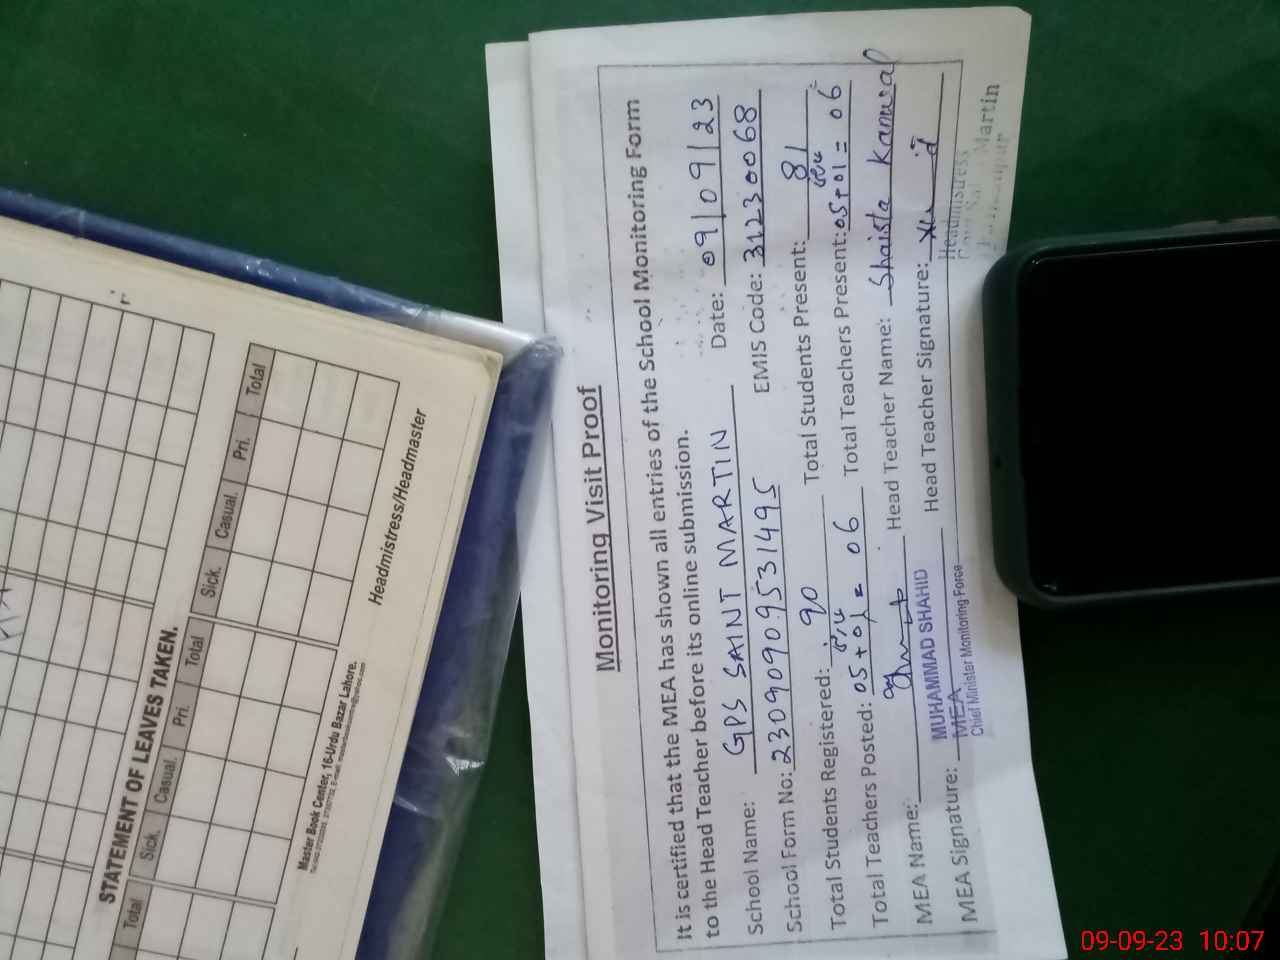 Monitoring Visit Proof
It is certified that the MEA has shown all entries of the School Monitoring Form
to the Head Teacher before its online submission.
School Name: GPS SAINT MARTIN Date: 09/09/23
School Form No: 2309090953149 5 EMIS Code: 31230068
Total Students Registered: 90 Total Students Present: 81
Total Teachers Posted: 05+01= 06 Total Teachers Present: 05+01= 06
MEA Name: MUHAMMAD SHAHID Head Teacher Name: Shaista Kanwal
MEA Signature: MEA Head Teacher Signature:
Chief Minister Monitoring Force
Headmistress
Martin
STATEMENT OF LEAVES TAKEN.
Total Sick. Casual. Pri. Total Sick. Casual. Pri. Total
Master Book Center, 16-Urdu Bazar Lahore.
Headmistress/Headmaster
09-09-23 10:07